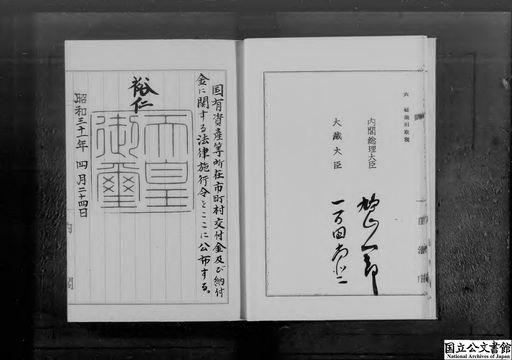 国有資産等所在市町村交付金及び納付
金に関する法律施行令をここに公布する。
裕仁
天皇
御璽
昭和三十一年四月二十四日
内閣
内閣総理大臣
鳩山一郎
大蔵大臣
一万田尚登
国立公文書館
National Archives of Japan